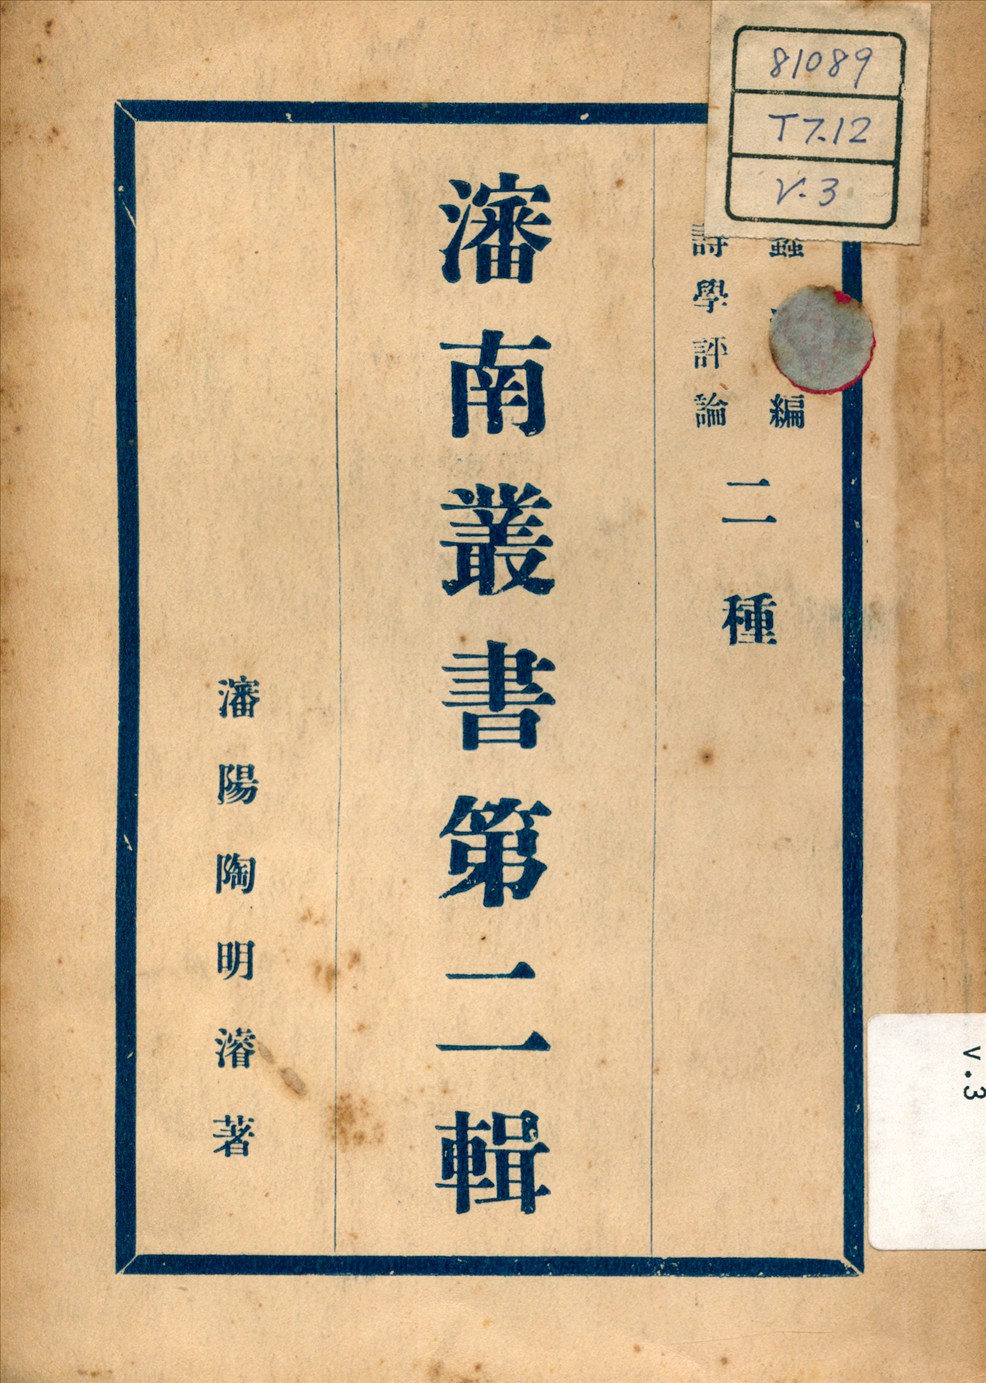 81089
T7.12
V.3
編
詩學評論
二種
瀋南叢書第二輯
瀋陽陶明濬著
v.3